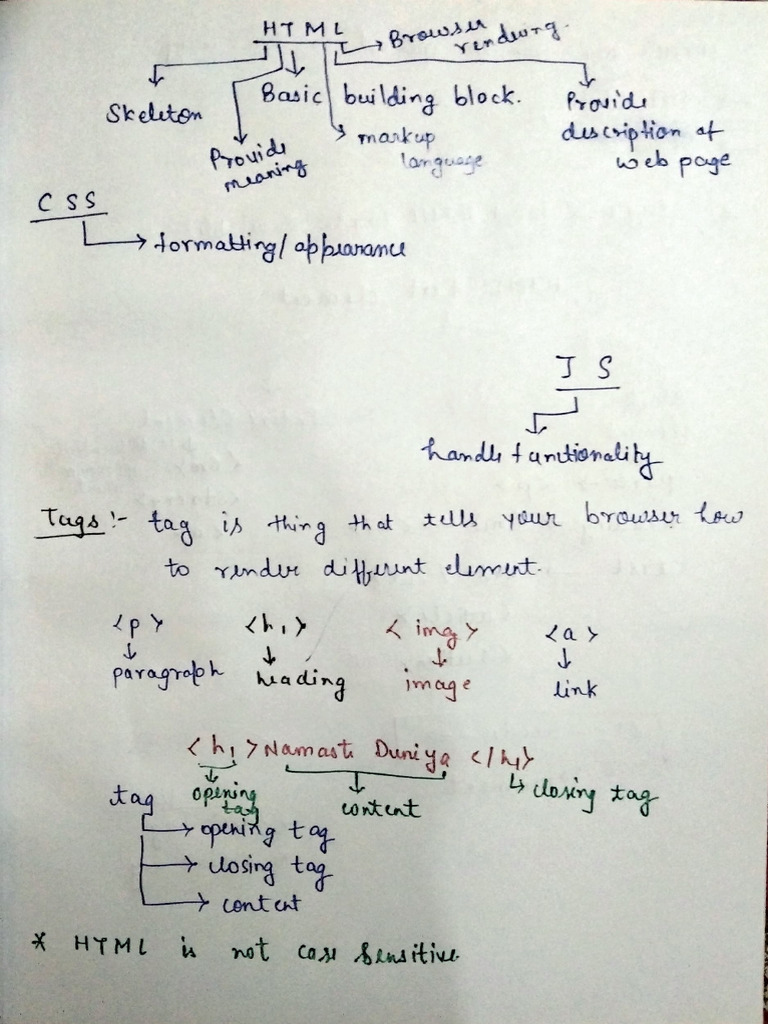 HTML
Browser
rendering.
Skeleton
Basic building block.
Provide
description of
web page
Provide
meaning
markup
language
CSS
formatting/appearance
JS
handle functionality
Tags :- tag is thing that tells your browser how
to render different element.
<p> <h1> <img> <a>
paragraph heading image link
<h1> Namaste Duniya </h1>
opening
tag
content
closing tag
tag
opening tag
closing tag
content
* HTML is not case sensitive.